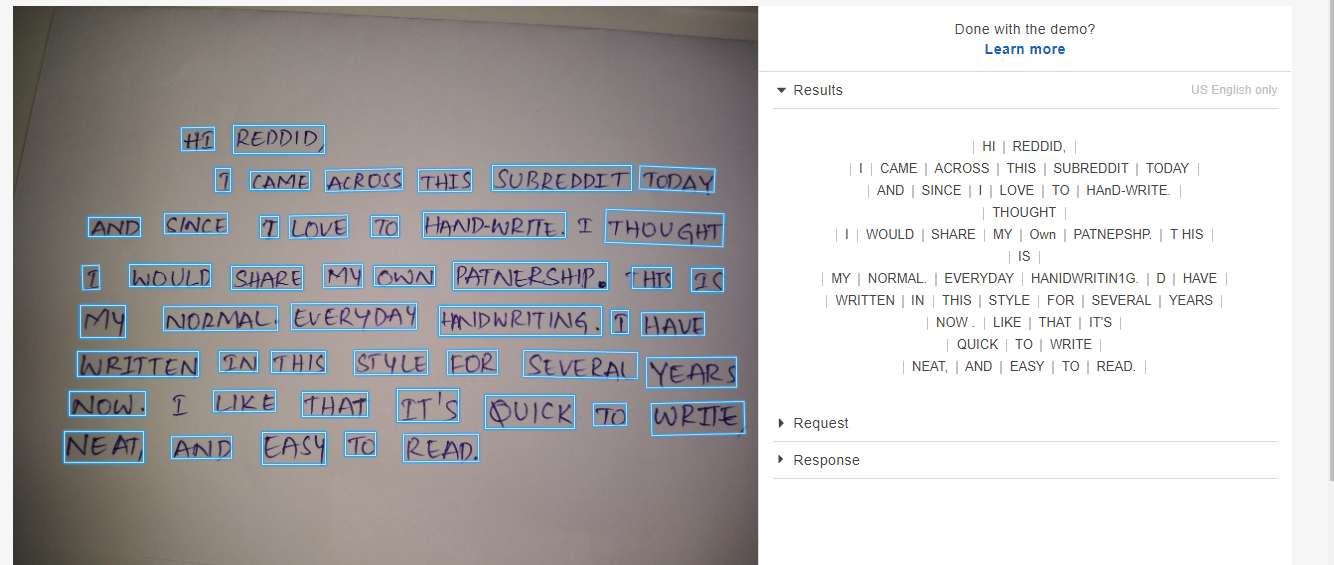 HI REDDID,
I CAME ACROSS THIS SUBREDDIT TODAY
AND SINCE I LOVE TO HAND-WRITE. I THOUGHT
I WOULD SHARE MY OWN PATNERSHIP. THIS IS
MY NORMAL. EVERYDAY HANDWRITING. I HAVE
WRITTEN IN THIS STYLE FOR SEVERAL YEARS
NOW. I LIKE THAT IT'S QUICK TO WRITE,
NEAT, AND EASY TO READ.
Done with the demo?
Learn more
Results US English only
| HI | REDDID, |
| I | CAME | ACROSS | THIS | SUBREDDIT | TODAY |
| AND | SINCE | I | LOVE | TO | HAnD-WRITE. |
| THOUGHT |
| I | WOULD | SHARE | MY | Own | PATNEPSHP. | T HIS |
| IS |
| MY | NORMAL. | EVERYDAY | HANDWRITIN1G. | D | HAVE |
| WRITTEN | IN | THIS | STYLE | FOR | SEVERAL | YEARS |
| NOW . | LIKE | THAT | IT'S |
| QUICK | TO | WRITE |
| NEAT, | AND | EASY | TO | READ. |
Request
Response